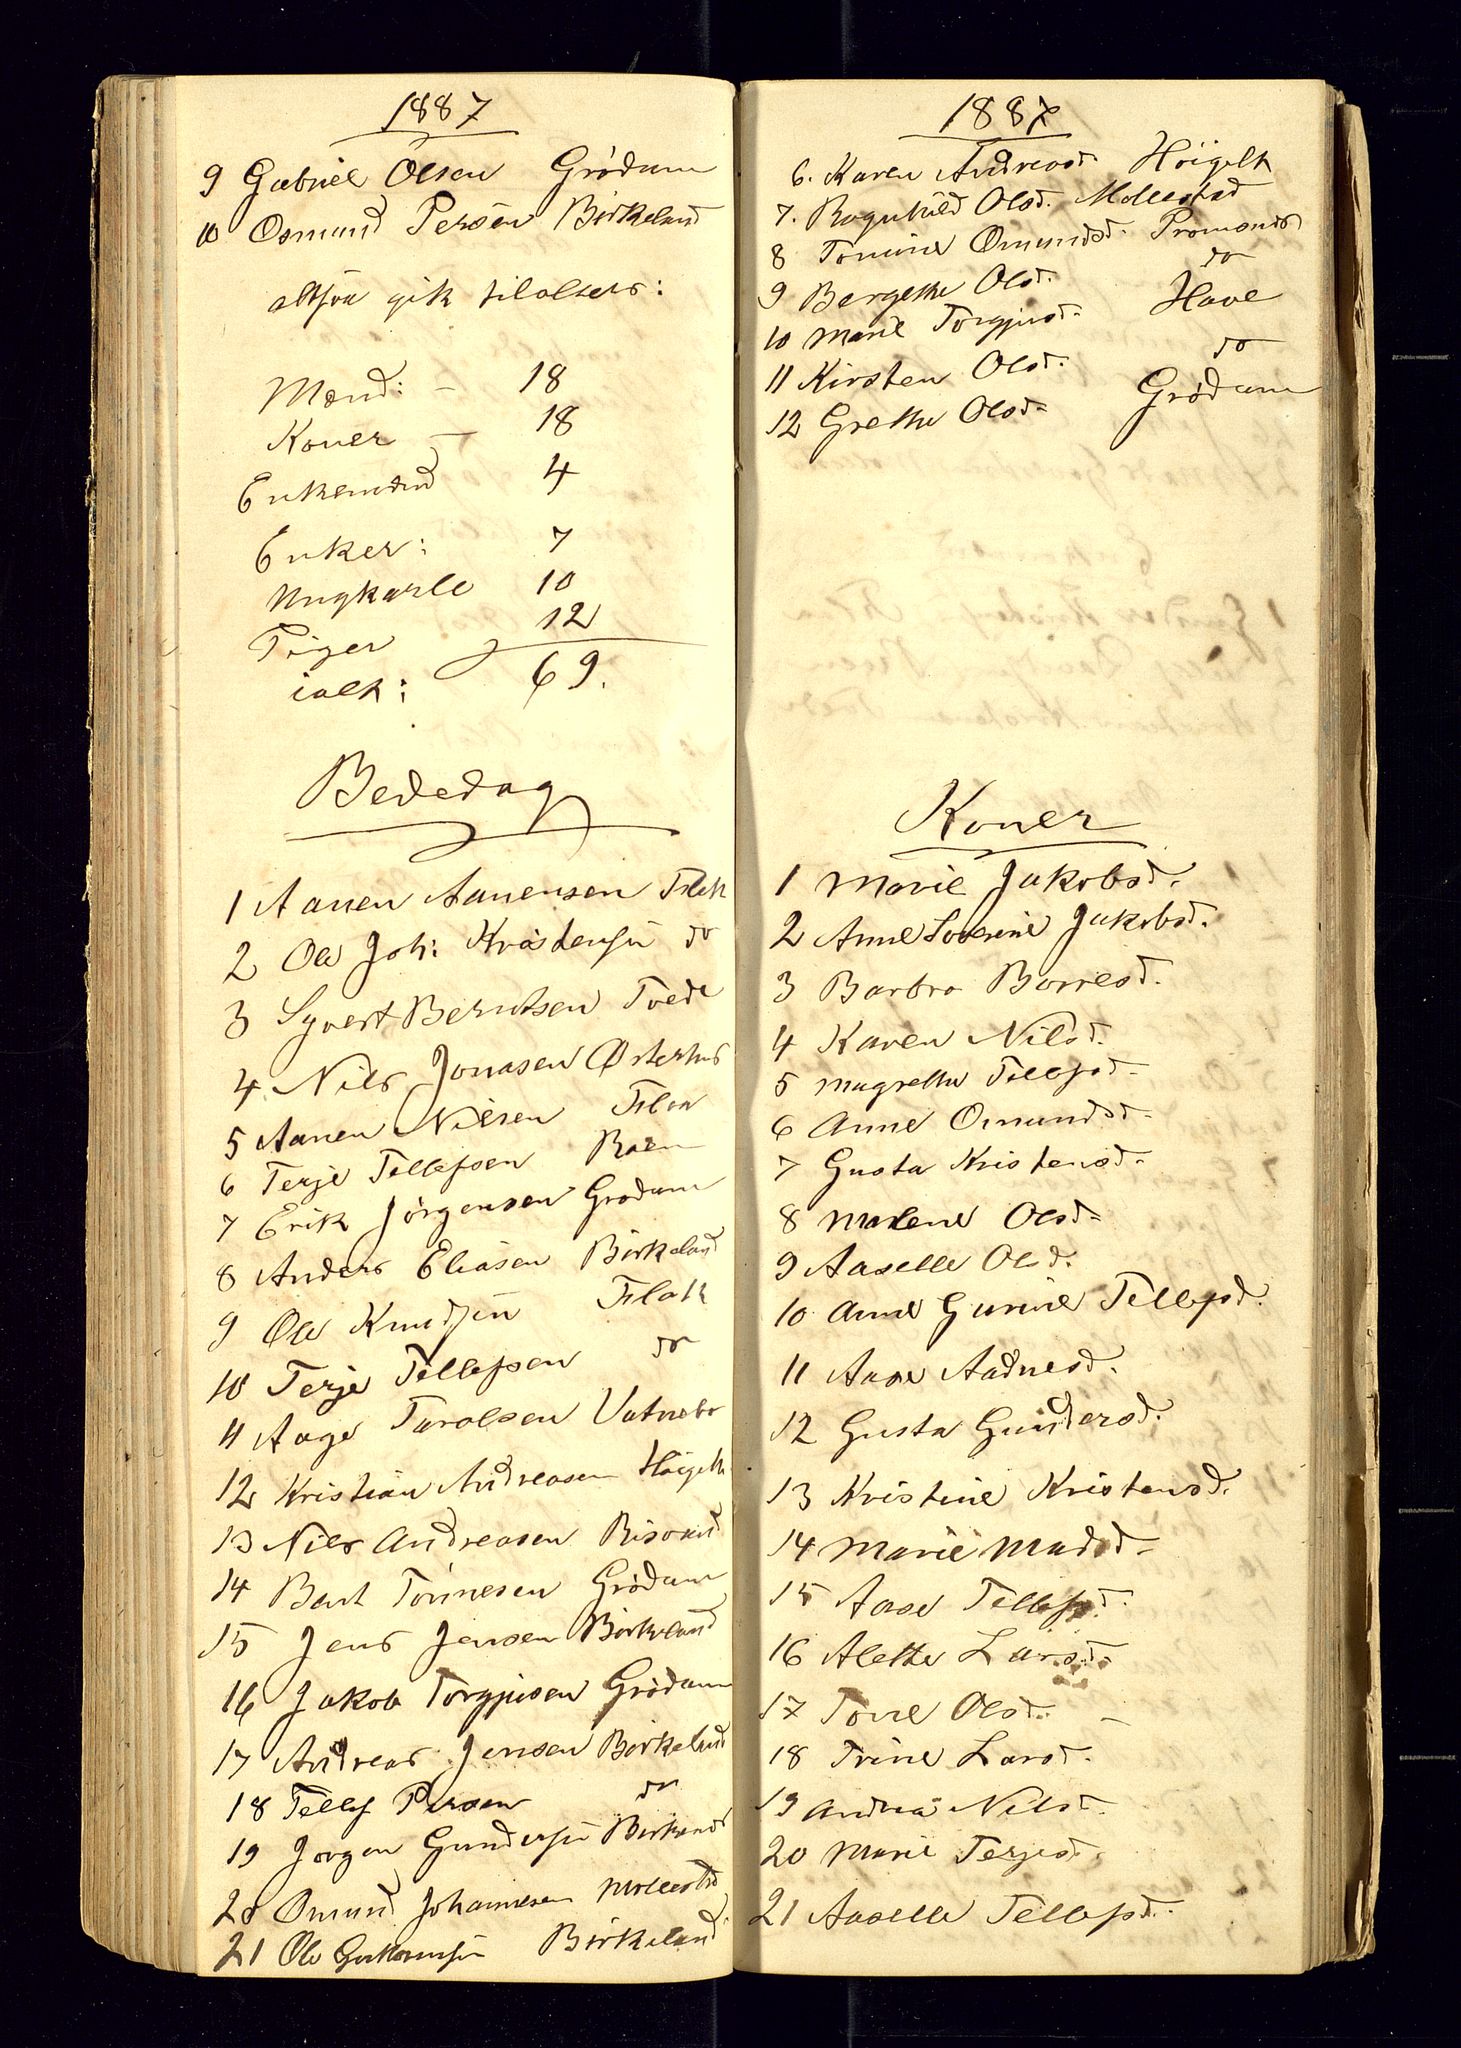 1887
9 Gabriel Olsen Grødum
10 Osmund Persen Birkeland
altsaa gik tilalters:
Mænd: — 18
Koner — 18
Enkemænd 4
Enker: 7
Ungkarle 10
Piger 12
ialt: 69.
Bededag
1 Aanen Aanensen Flak
2 Ole Joh: Kristensen do
3 Syvert Berntsen Tvede
4 Nils Jonasen Østerhus
5 Aanen Nilsen
6 Terje Tellefsen Roen
7 Erik Jørgensen Grødum
8 Anders Eliasen Birkeland
9 Ole Knudsen Flak
10 Terje Tellefsen do
11 Aage Tarolsen Vatnebo
12 Kristian Andreasen Høigilt
13 Nils Andreasen Risland
14 Bert Tønnesen Grødum
15 Jens Jensen Birkeland
16 Jakob Torgjusen Grødum
17 Andreas Jensen Birkeland
18 Tellef Persen do
19 Jørgen Gundersen
20 Omund Johannesen Mollestad
21 Ole Guttormsen Birkeland
1887
6. Karen Andreasd. Høigilt
7. Ragnhild Olsd. Mollestad
8 Tomine Omundsd.
9 Bergethe Olsd. do
10 Marie Torgjusd. Have
11 Kirsten Olsd. do
12 Grethe Olsd. Grødum
Koner
1 Marie Jakobsd.
2 Anne Severine Jakobsd.
3 Barbro Børresd.
4 Karen Nilsd.
5 Magrethe Tellefsd.
6 Anne Omundsd.
7 Gusta Kristensd.
8 Malene Olsd.
9 Aaselle Olsd.
10 Anne Gurine Tellefsd.
11 Aase Aadnesd.
12 Gusta Gundersd.
13 Kristine Kristensd.
14 Marie Madsd.
15 Aase Tellefsd.
16 Alethe Larsd.
17 Tone Olsd. —
18 Trine Larsd.
19 Andrea Nilsd.
20 Marie Terjesd.
21 Aaselle Tellefsd.